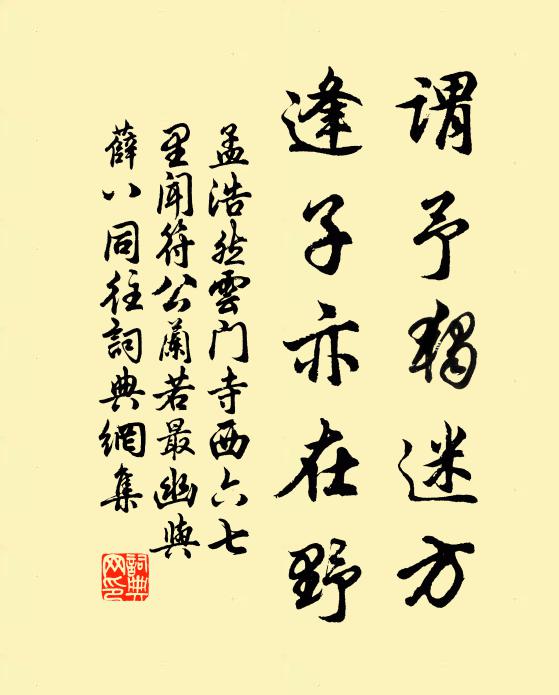 謂予獨迷方
逢子亦在野
孟浩然雲门寺西六七
里聞符公蘭若最幽與
薛八同往詞典網集
詞典
网印